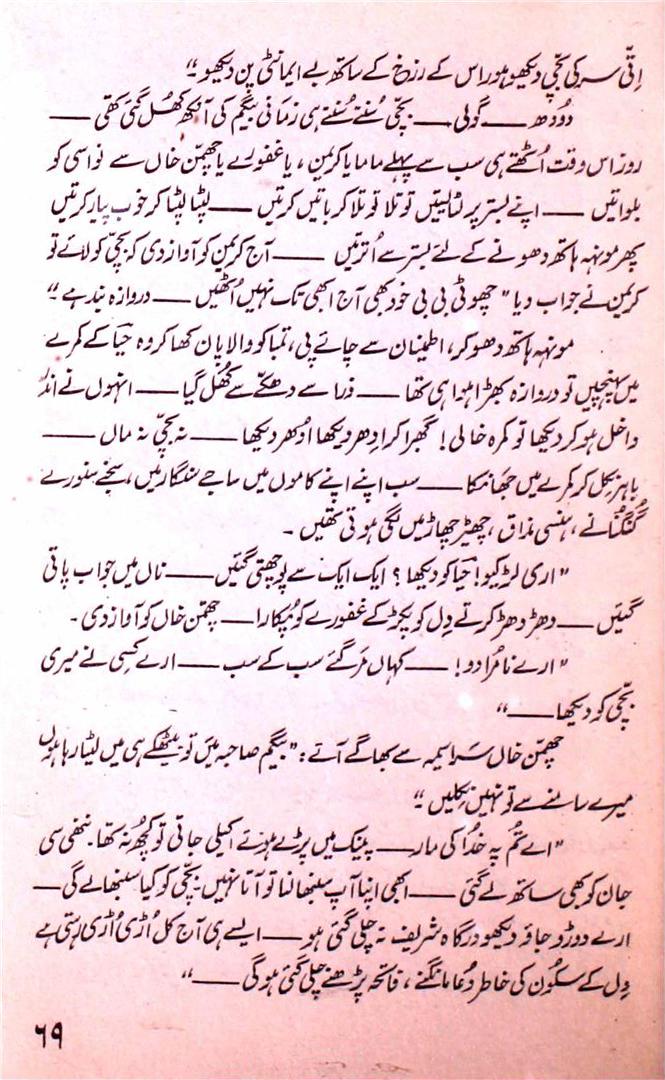 اِتّی سر کی بچّی دیکھو ہور اس کے رزخ کے ساتھ بے ایمانٹی پن دیکھو ۔"
دُودھ ــــ گولی ــــ بچّی سُنتے سُنتے ہی زمانی بیگم کی آنکھ کھُل گئی تھی ــــ
روز اس وقت اُٹھتے ہی سب سے پہلے ماما یا کریمن، یا غفورے یا چھمّن خاں سے نواسی کو
بلواتیں ــــ اپنے بستر پر لٹا لیتیں تو تلا تو تلا کر باتیں کرتیں ــــ لپٹا لپٹا کر خوب پیار کرتیں
پھر مونہہ ہاتھ دھونے کے لئے بستر سے اُترتیں ــــ آج کریمن کو آواز دی کہ بچّی کو لائے تو
کریمن نے جواب دیا " چھوٹی بی بی خود بھی آج ابھی تک نہیں اُٹھیں ــــ دروازہ بند ہے ۔"
مونہہ ہاتھ دھو کر، اطمینان سے چائے پی، تمباکو والا پان کھا کر وہ حیَا کے کمرے
میں پہنچیں تو دروازہ بھِڑا ہوا ہی تھا ــــ ذرا سے دھکّے سے کھُل گیا ــــ انہوں نے اندر
داخل ہو کر دیکھا تو کمرہ خالی! گھبرا کر اِدھر دیکھا اُدھر دیکھا ــــ نہ بچّی نہ ماں ــــ
باہر نکل کر کمرے میں جھانکا ــــ سب اپنے اپنے کاموں میں ساجے سنگار میں، سجنے سنورنے
گُنگُنانے، ہنسی مذاق، چھیڑ چھاڑ میں لگی ہوئی تھیں ۔
" اری لڑکیو! حیَا کو دیکھا؟ ایک ایک سے پوچھتی گئیں ــــ ناں میں جواب پاتی
گئیں ــــ دھڑ دھڑ کرتے دِل کو پکڑ کے غفورے کو پُکارا ــــ چھمّن خاں کو آواز دی ۔
" ارے نامُرادو! ــــ کہاں مر گئے سب کے سب ــــ ارے کسی نے میری
بچّی کو دیکھا ــــ "
چھمّن خاں سَراسیمہ سے بھاگے آئے : " بیگم صاحبہ میں تو بیٹھکے ہی میں لیٹا رہا ہوں
میرے سامنے سے تو نہیں نِکلیں ۔"
" اے تُم پہ خُدا کی مار ــــ پینک میں پڑے ہوئے اکیلی جاتی تو کچھ نہ تھا۔ ننھی سی
جان کو بھی ساتھ لے گئی ــــ ابھی اپنا آپ سنبھالنا تو آتا نہیں۔ بچّی کو کیا سنبھالے گی ــــ
ارے دوڑو جاؤ دیکھو درگاہ شریف نہ چلی گئی ہو ــــ ایسے ہی آج کل اُڑی اُڑی رہتی ہے
دِل کے سکُون کی خاطر دُعا مانگنے، فاتحہ پڑھنے چلی گئی ہوگی ــــ "
۶۹